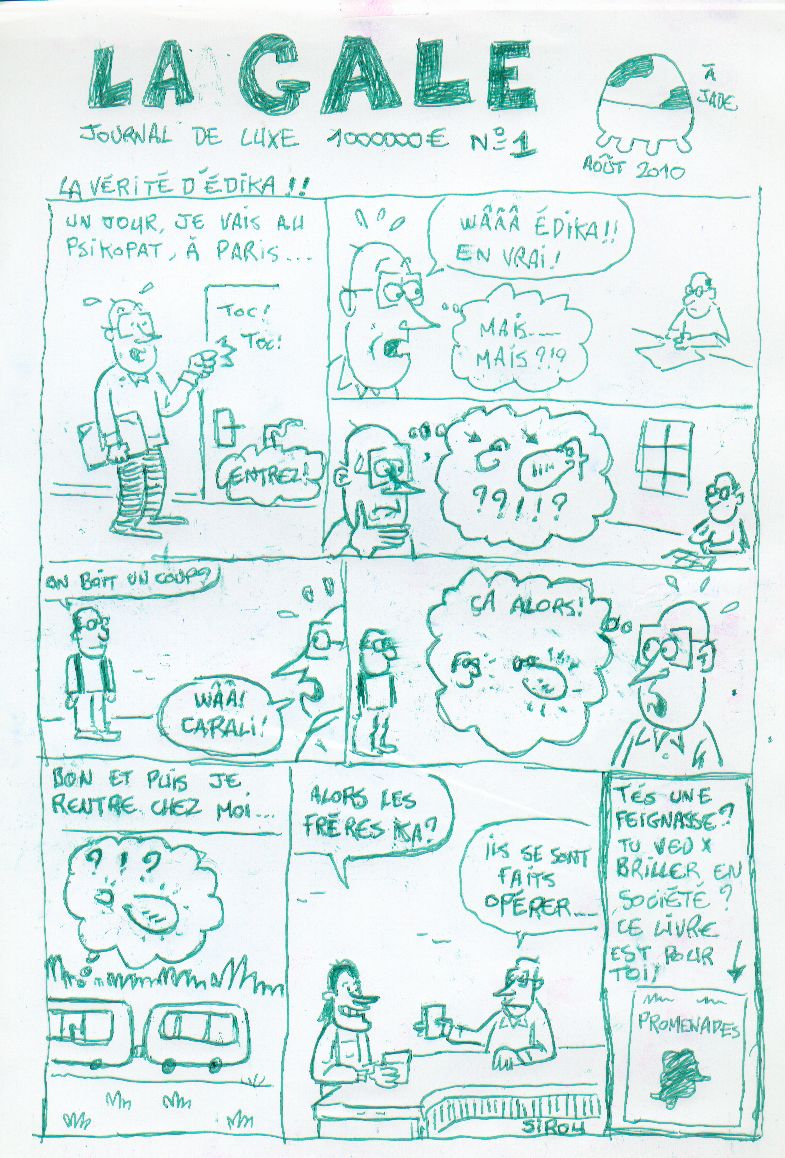 LA GALE
JOURNAL DE LUXE 1000000€ N°1
À
JADE
AOÛT 2010
LA VÉRITÉ D'ÉDIKA !!
UN JOUR, JE VAIS AU
PSIKOPAT, À PARIS...
TOC!
TOC!
ENTREZ!
WÂÂÂ ÉDIKA!!
EN VRAI!
MAIS...
MAIS?!?
??!!?
ON BOIT UN COUP?
WÂÂ!
CARALI!
ÇA ALORS!
BON ET PUIS JE
RENTRE CHEZ MOI...
?!?
ALORS LES
FRÈRES KA?
IIS SE SONT
FAITS
OPÉRER...
SIROU
TÉS UNE
FEIGNASSE?
TU VEUX
BRILLER EN
SOCIÉTÉ?
CE LIVRE
EST POUR
TOI!
PROMENADES